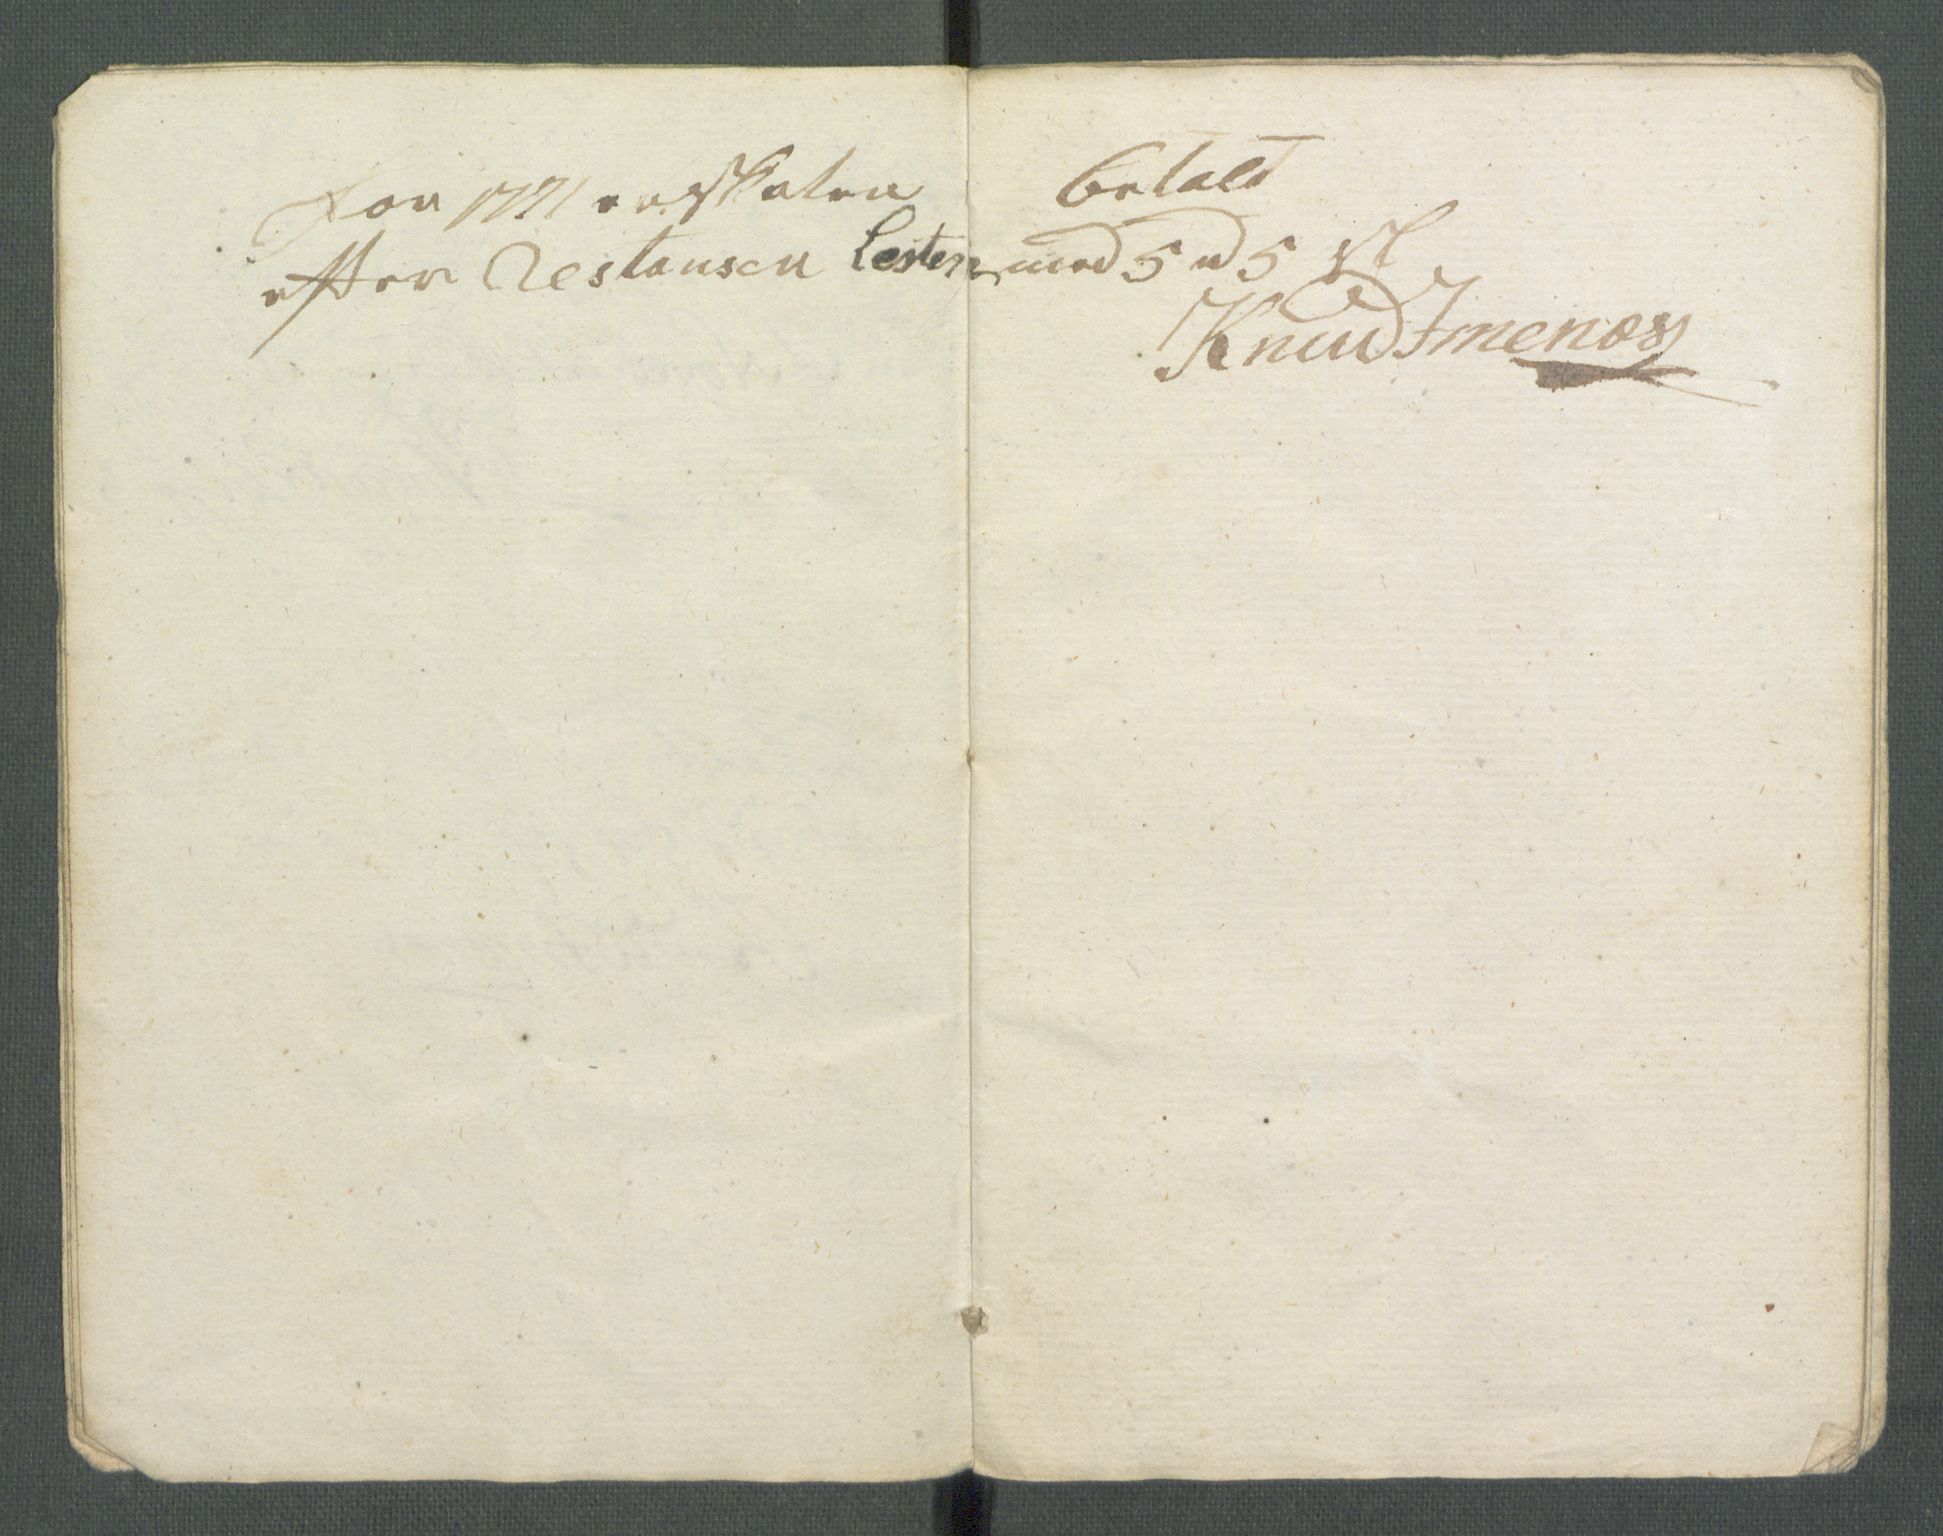 for 1771 er Skaten betalt
efter Restansen Lesten med 5 d 5 s
Knud Imenæs